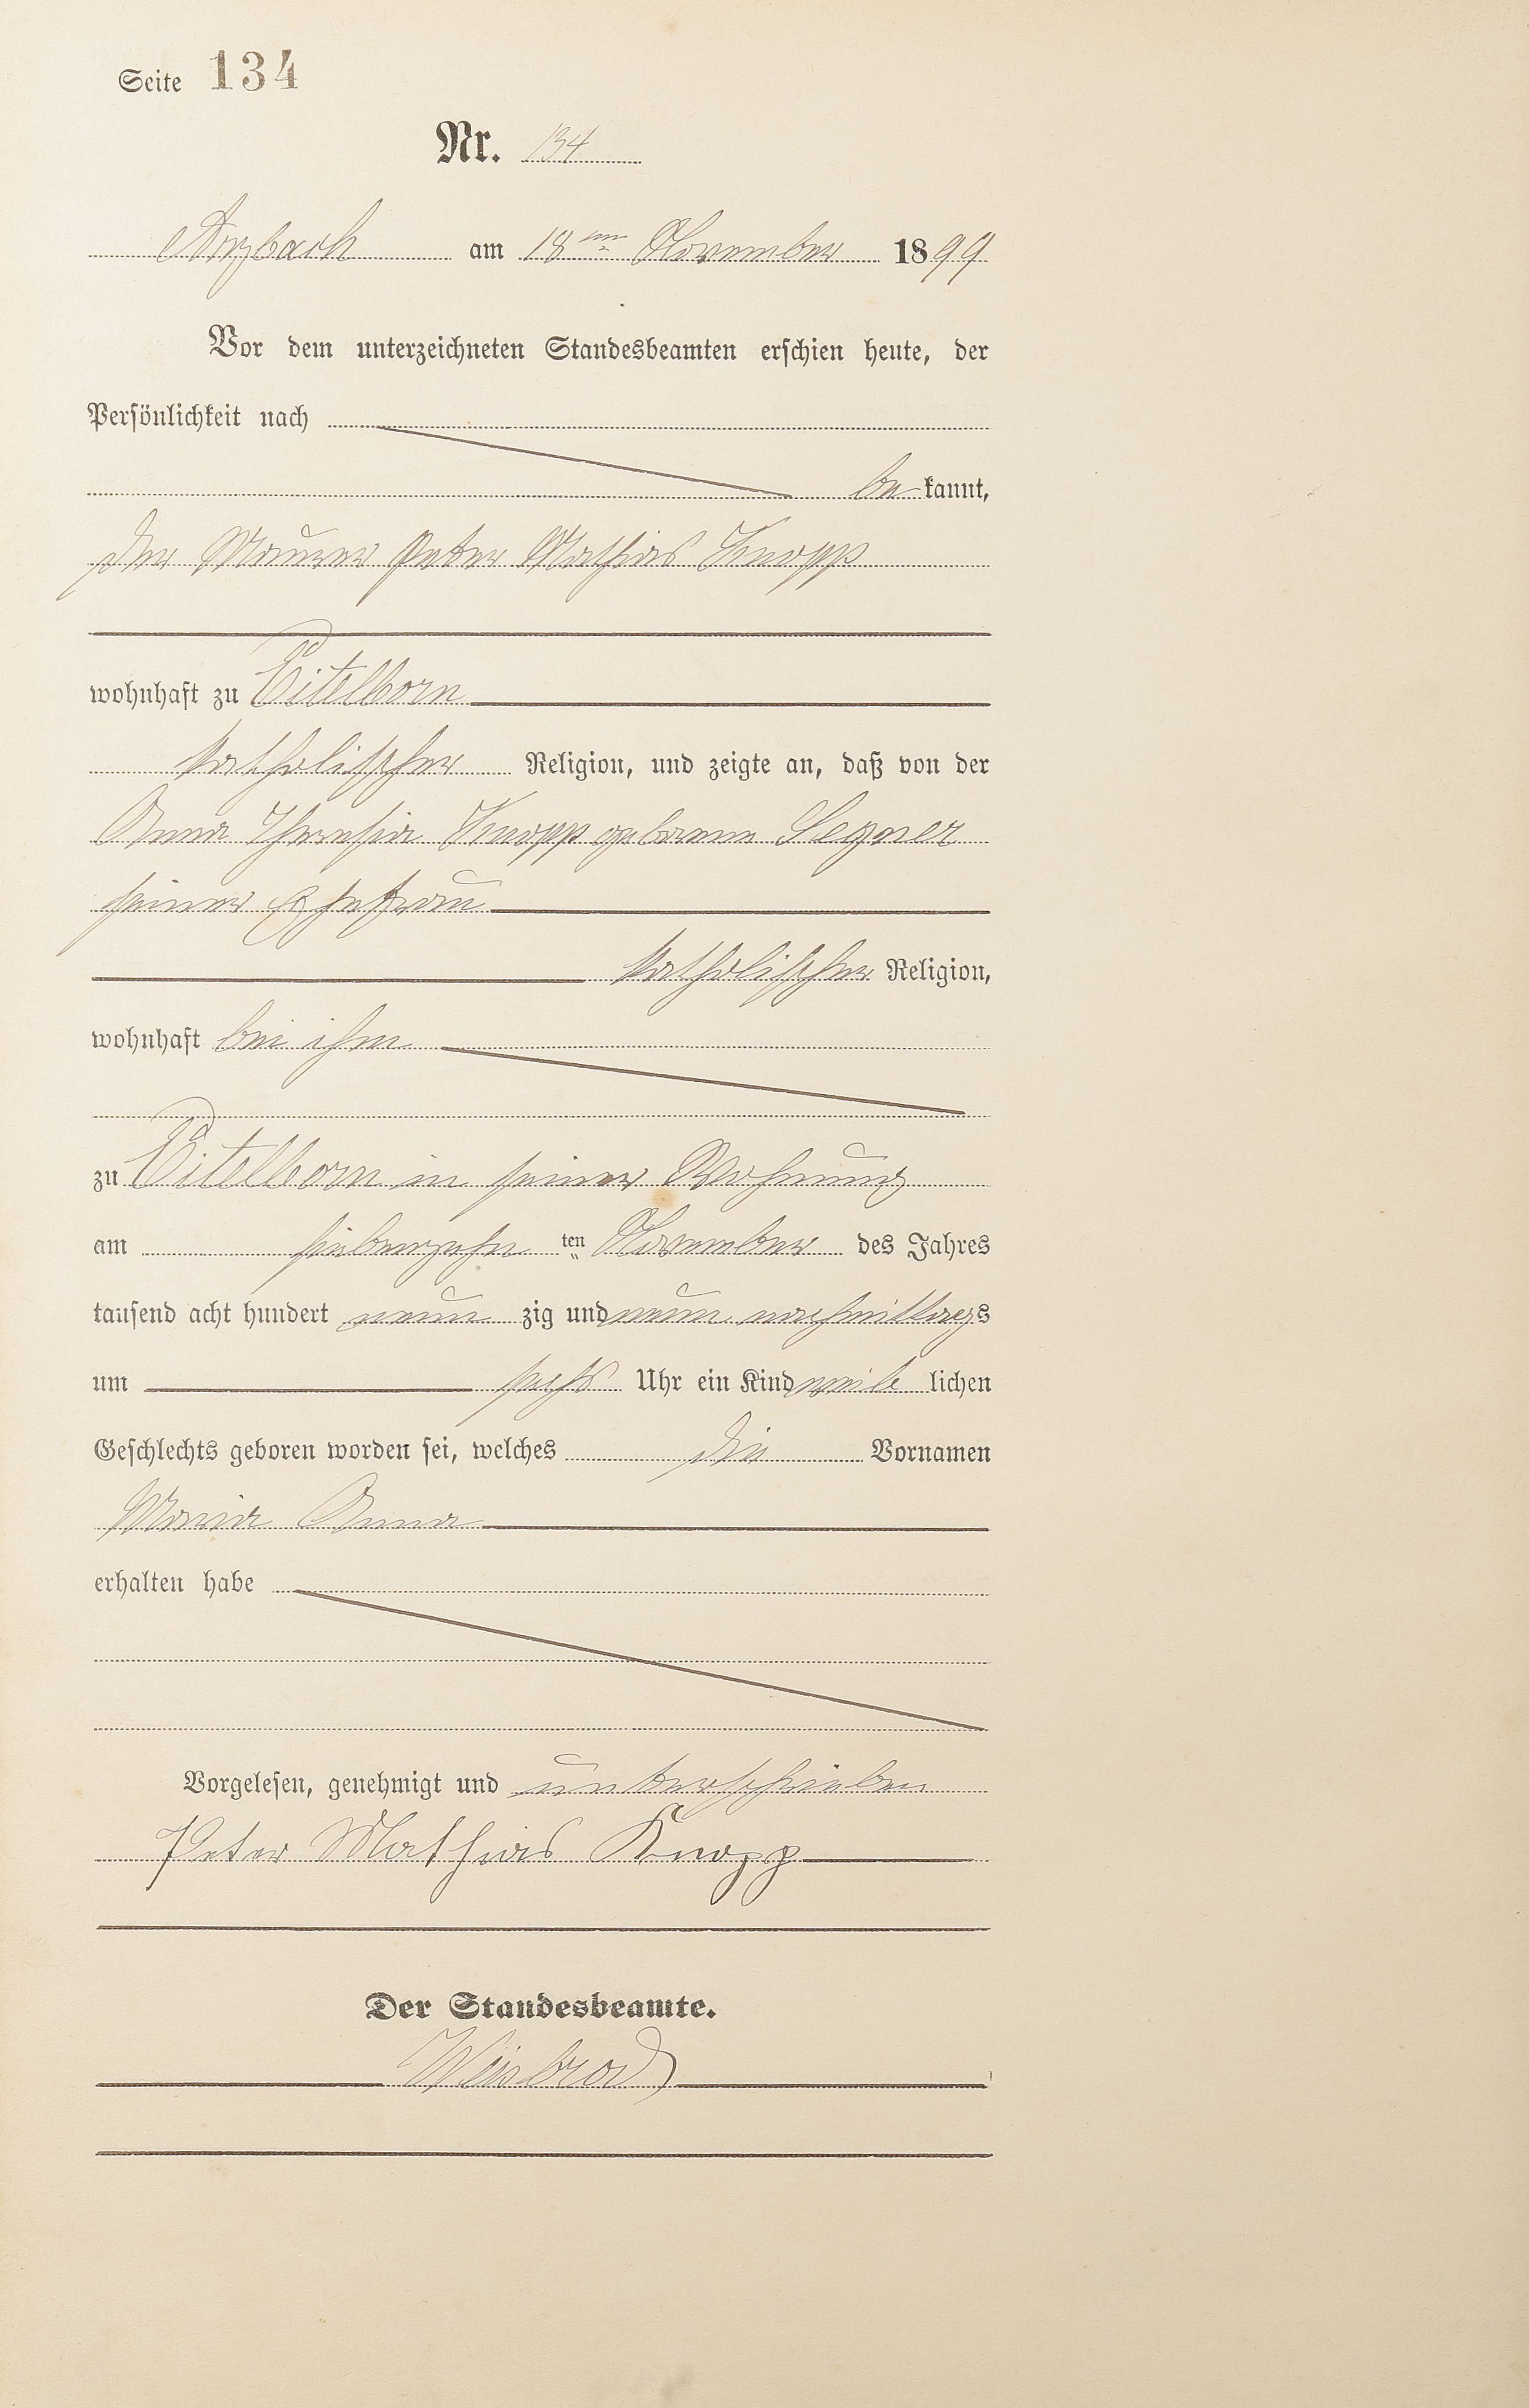 Seite 134
Nr. 134
Arzbach am 18ten November 1899
Vor dem unterzeichneten Standesbeamten erschien heute, der
Persönlichkeit nach
bekannt,
der Maurer Peter Mathias Knopp
wohnhaft zu Eitelborn
katholischer Religion, und zeigte an, daß von der
Anna Theresia Knopp geborenen Legner
seiner Ehefrau
katholischer Religion,
wohnhaft bei ihm
zu Eitelborn in seiner Wohnung
am siebenzehn ten November des Jahres
tausend acht hundert neun zig und neun nachmittags
um sechs Uhr ein Kind weib lichen
Geschlechts geboren worden sei, welches die Vornamen
Maria Anna
erhalten habe
Vorgelesen, genehmigt und unterschrieben
Peter Mathias Knopp
Der Standesbeamte.
Weisbrod